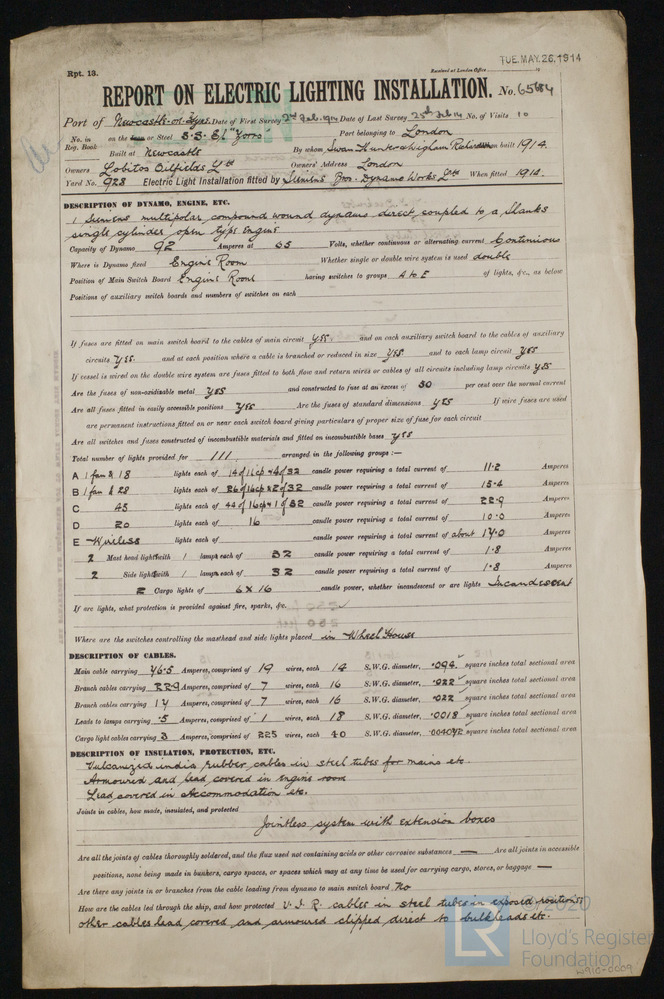 TUE.MAY.26.1914
Rpt. 13.
Received at London Office
REPORT ON ELECTRIC LIGHTING INSTALLATION. No. 65684
Port of Newcastle-on-Tyne Date of First Survey 2nd Feb. 1914 Date of Last Survey 25th Feb 14 No. of Visits 10
No. in Reg. Book on the Iron or Steel S.S. "El Zorro" Port belonging to London
Built at Newcastle By whom Swan Hunter & Wigham Richardson When built 1914.
Owners Lobitos Oilfields Ltd Owners' Address London
Yard No. 928 Electric Light Installation fitted by Siemens Bros. Dynamo Works Ltd When fitted 1914.
DESCRIPTION OF DYNAMO, ENGINE, ETC.
1 Siemens multipolar compound wound dynamo direct coupled to a Shanks
single cylinder open type Engine
Capacity of Dynamo 92 Amperes at 65 Volts, whether continuous or alternating current Continuous
Where is Dynamo fixed Engine Room Whether single or double wire system is used double
Position of Main Switch Board Engine Room having switches to groups A to E of lights, &c., as below
Positions of auxiliary switch boards and numbers of switches on each
If fuses are fitted on main switch board to the cables of main circuit yes and on each auxiliary switch board to the cables of auxiliary
circuits yes and at each position where a cable is branched or reduced in size yes and to each lamp circuit yes
If vessel is wired on the double wire system are fuses fitted to both flow and return wires or cables of all circuits including lamp circuits yes
Are the fuses of non-oxidizable metal yes and constructed to fuse at an excess of 50 per cent over the normal current
Are all fuses fitted in easily accessible positions yes Are the fuses of standard dimensions yes If wire fuses are used
are permanent instructions fitted on or near each switch board giving particulars of proper size of fuse for each circuit
Are all switches and fuses constructed of incombustible materials and fitted on incombustible bases yes
Total number of lights provided for 111 arranged in the following groups :—
A 1 fan & 18 lights each of 14 of 16cp & 4 of 32 candle power requiring a total current of 11.2 Amperes
B 1 fan & 28 lights each of 26 of 16cp & 2 of 32 candle power requiring a total current of 15.4 Amperes
C 45 lights each of 44 of 16cp & 1 of 32 candle power requiring a total current of 22.9 Amperes
D 20 lights each of 16 candle power requiring a total current of 10.0 Amperes
E Wireless lights each of candle power requiring a total current of about 14.0 Amperes
2 Mast head light with 1 lamps each of 32 candle power requiring a total current of 1.8 Amperes
2 Side light with 1 lamps each of 32 candle power requiring a total current of 1.8 Amperes
2 Cargo lights of 6 x 16 candle power, whether incandescent or arc lights Incandescent
If arc lights, what protection is provided against fire, sparks, &c.
Where are the switches controlling the masthead and side lights placed in Wheel House
DESCRIPTION OF CABLES.
Main cable carrying 76.5 Amperes, comprised of 19 wires, each 14 S.W.G. diameter, .094 square inches total sectional area
Branch cables carrying 22.9 Amperes, comprised of 7 wires, each 16 S.W.G. diameter, .022 square inches total sectional area
Branch cables carrying 14 Amperes, comprised of 7 wires, each 16 S.W.G. diameter, .022 square inches total sectional area
Leads to lamps carrying .5 Amperes, comprised of 1 wires, each 18 S.W.G. diameter, .0018 square inches total sectional area
Cargo light cables carrying 3 Amperes, comprised of 225 wires, each 40 S.W.G. diameter, square inches total sectional area
DESCRIPTION OF INSULATION, PROTECTION, ETC.
Vulcanized india rubber cables in steel tubes for mains etc.
Armoured and lead covered in engine room
Lead covered in Accommodation etc.
Joints in cables, how made, insulated, and protected
Jointless system with extension boxes
Are all the joints of cables thoroughly soldered, and the flux used not containing acids or other corrosive substances — Are all joints in accessible
positions, none being made in bunkers, cargo spaces, or spaces which may at any time be used for carrying cargo, stores, or baggage —
Are there any joints in or branches from the cable leading from dynamo to main switch board no
How are the cables led through the ship, and how protected V.I.R. cables in steel tubes in exposed positions
other cables lead covered and armoured clipped direct to bulkheads etc.
2020
LR Lloyd's Register
Foundation
W910-0009